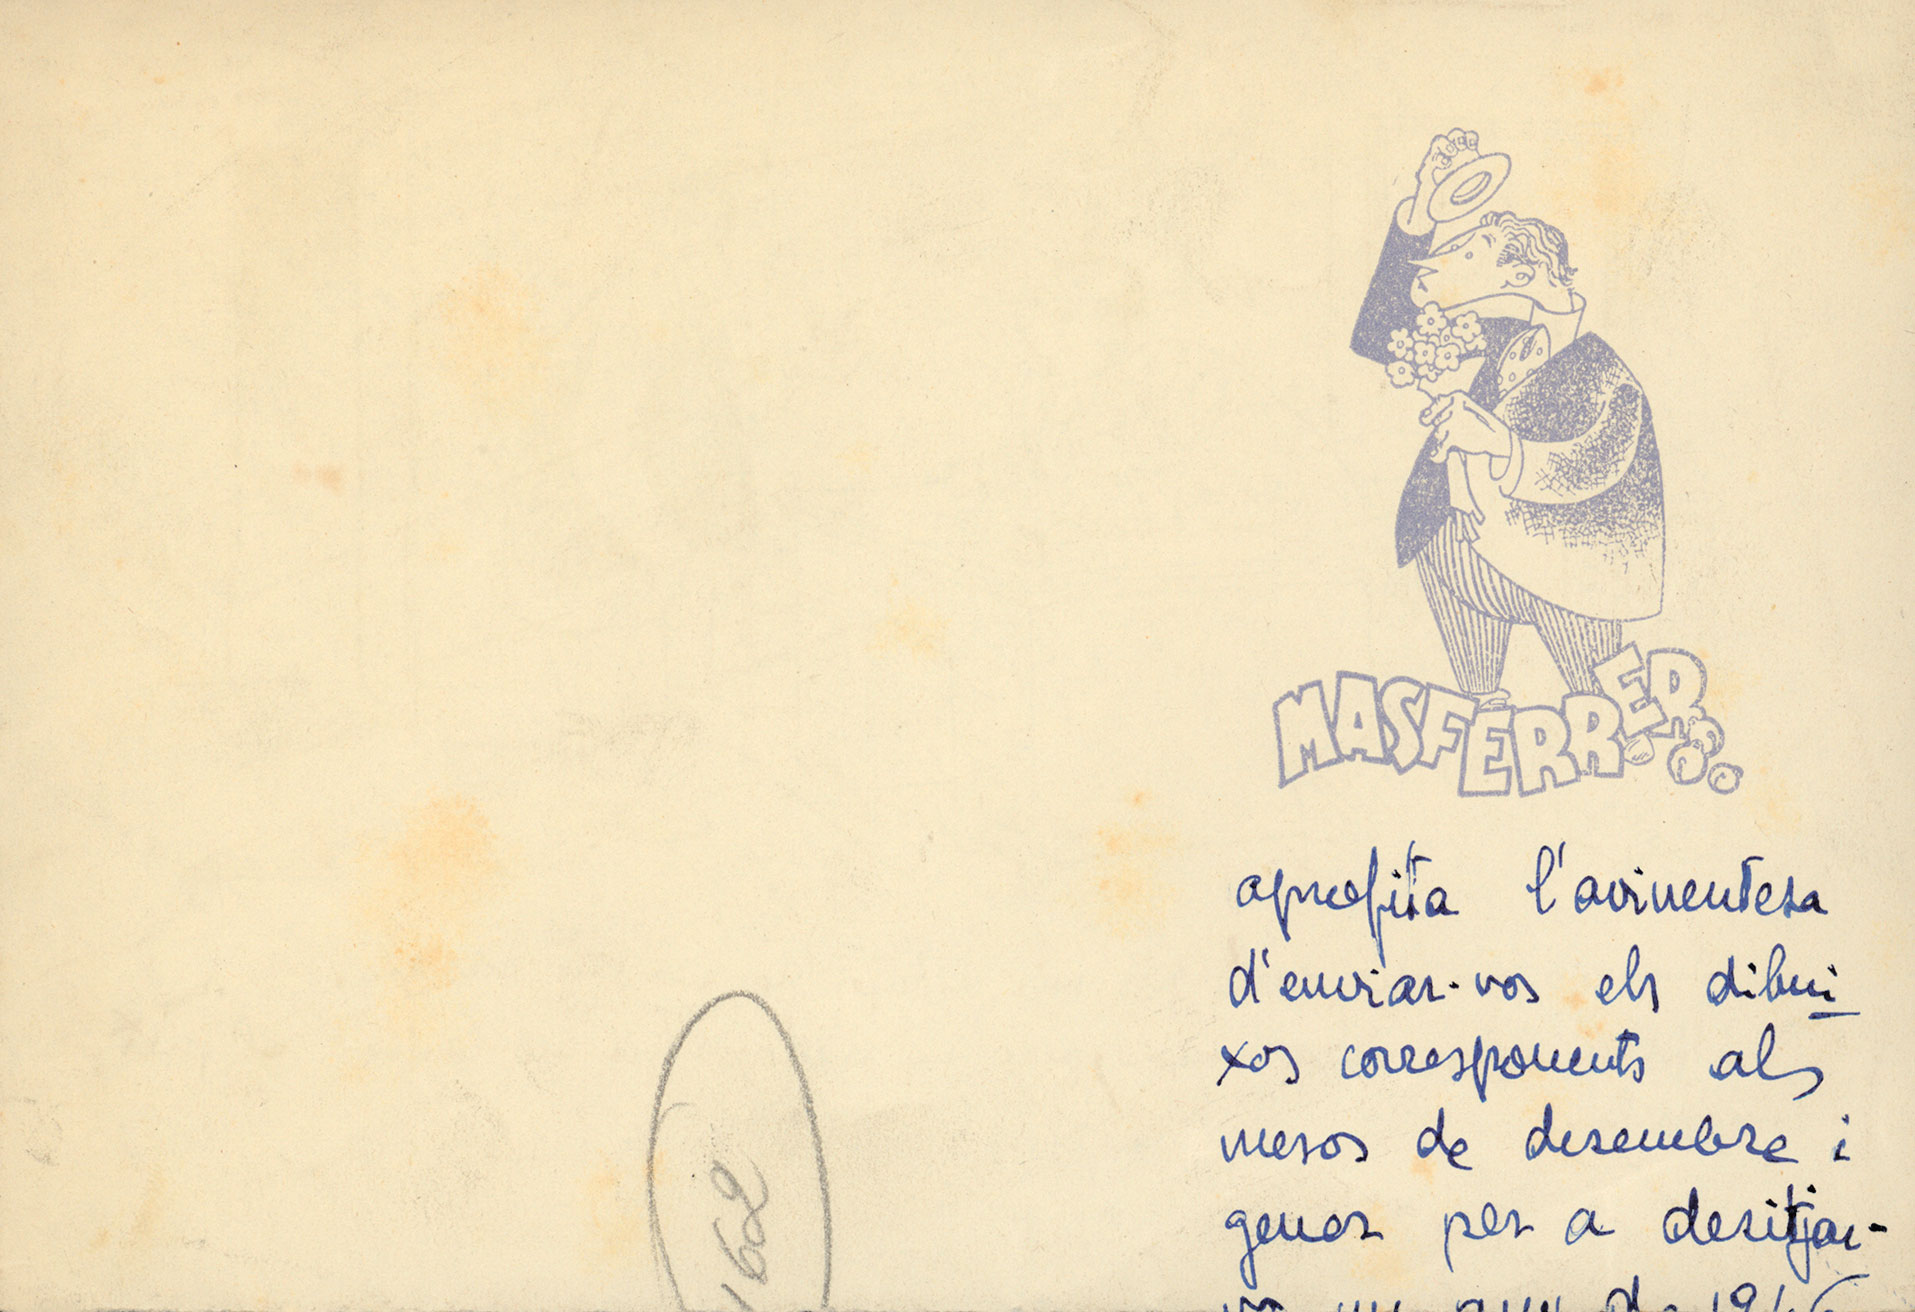 MASFERRER
aprofita l'avinentesa
d'enviar-vos els dibui
xos corresponents als
mesos de desembre i
gener per a desitjar-
vos un any de 1946
162